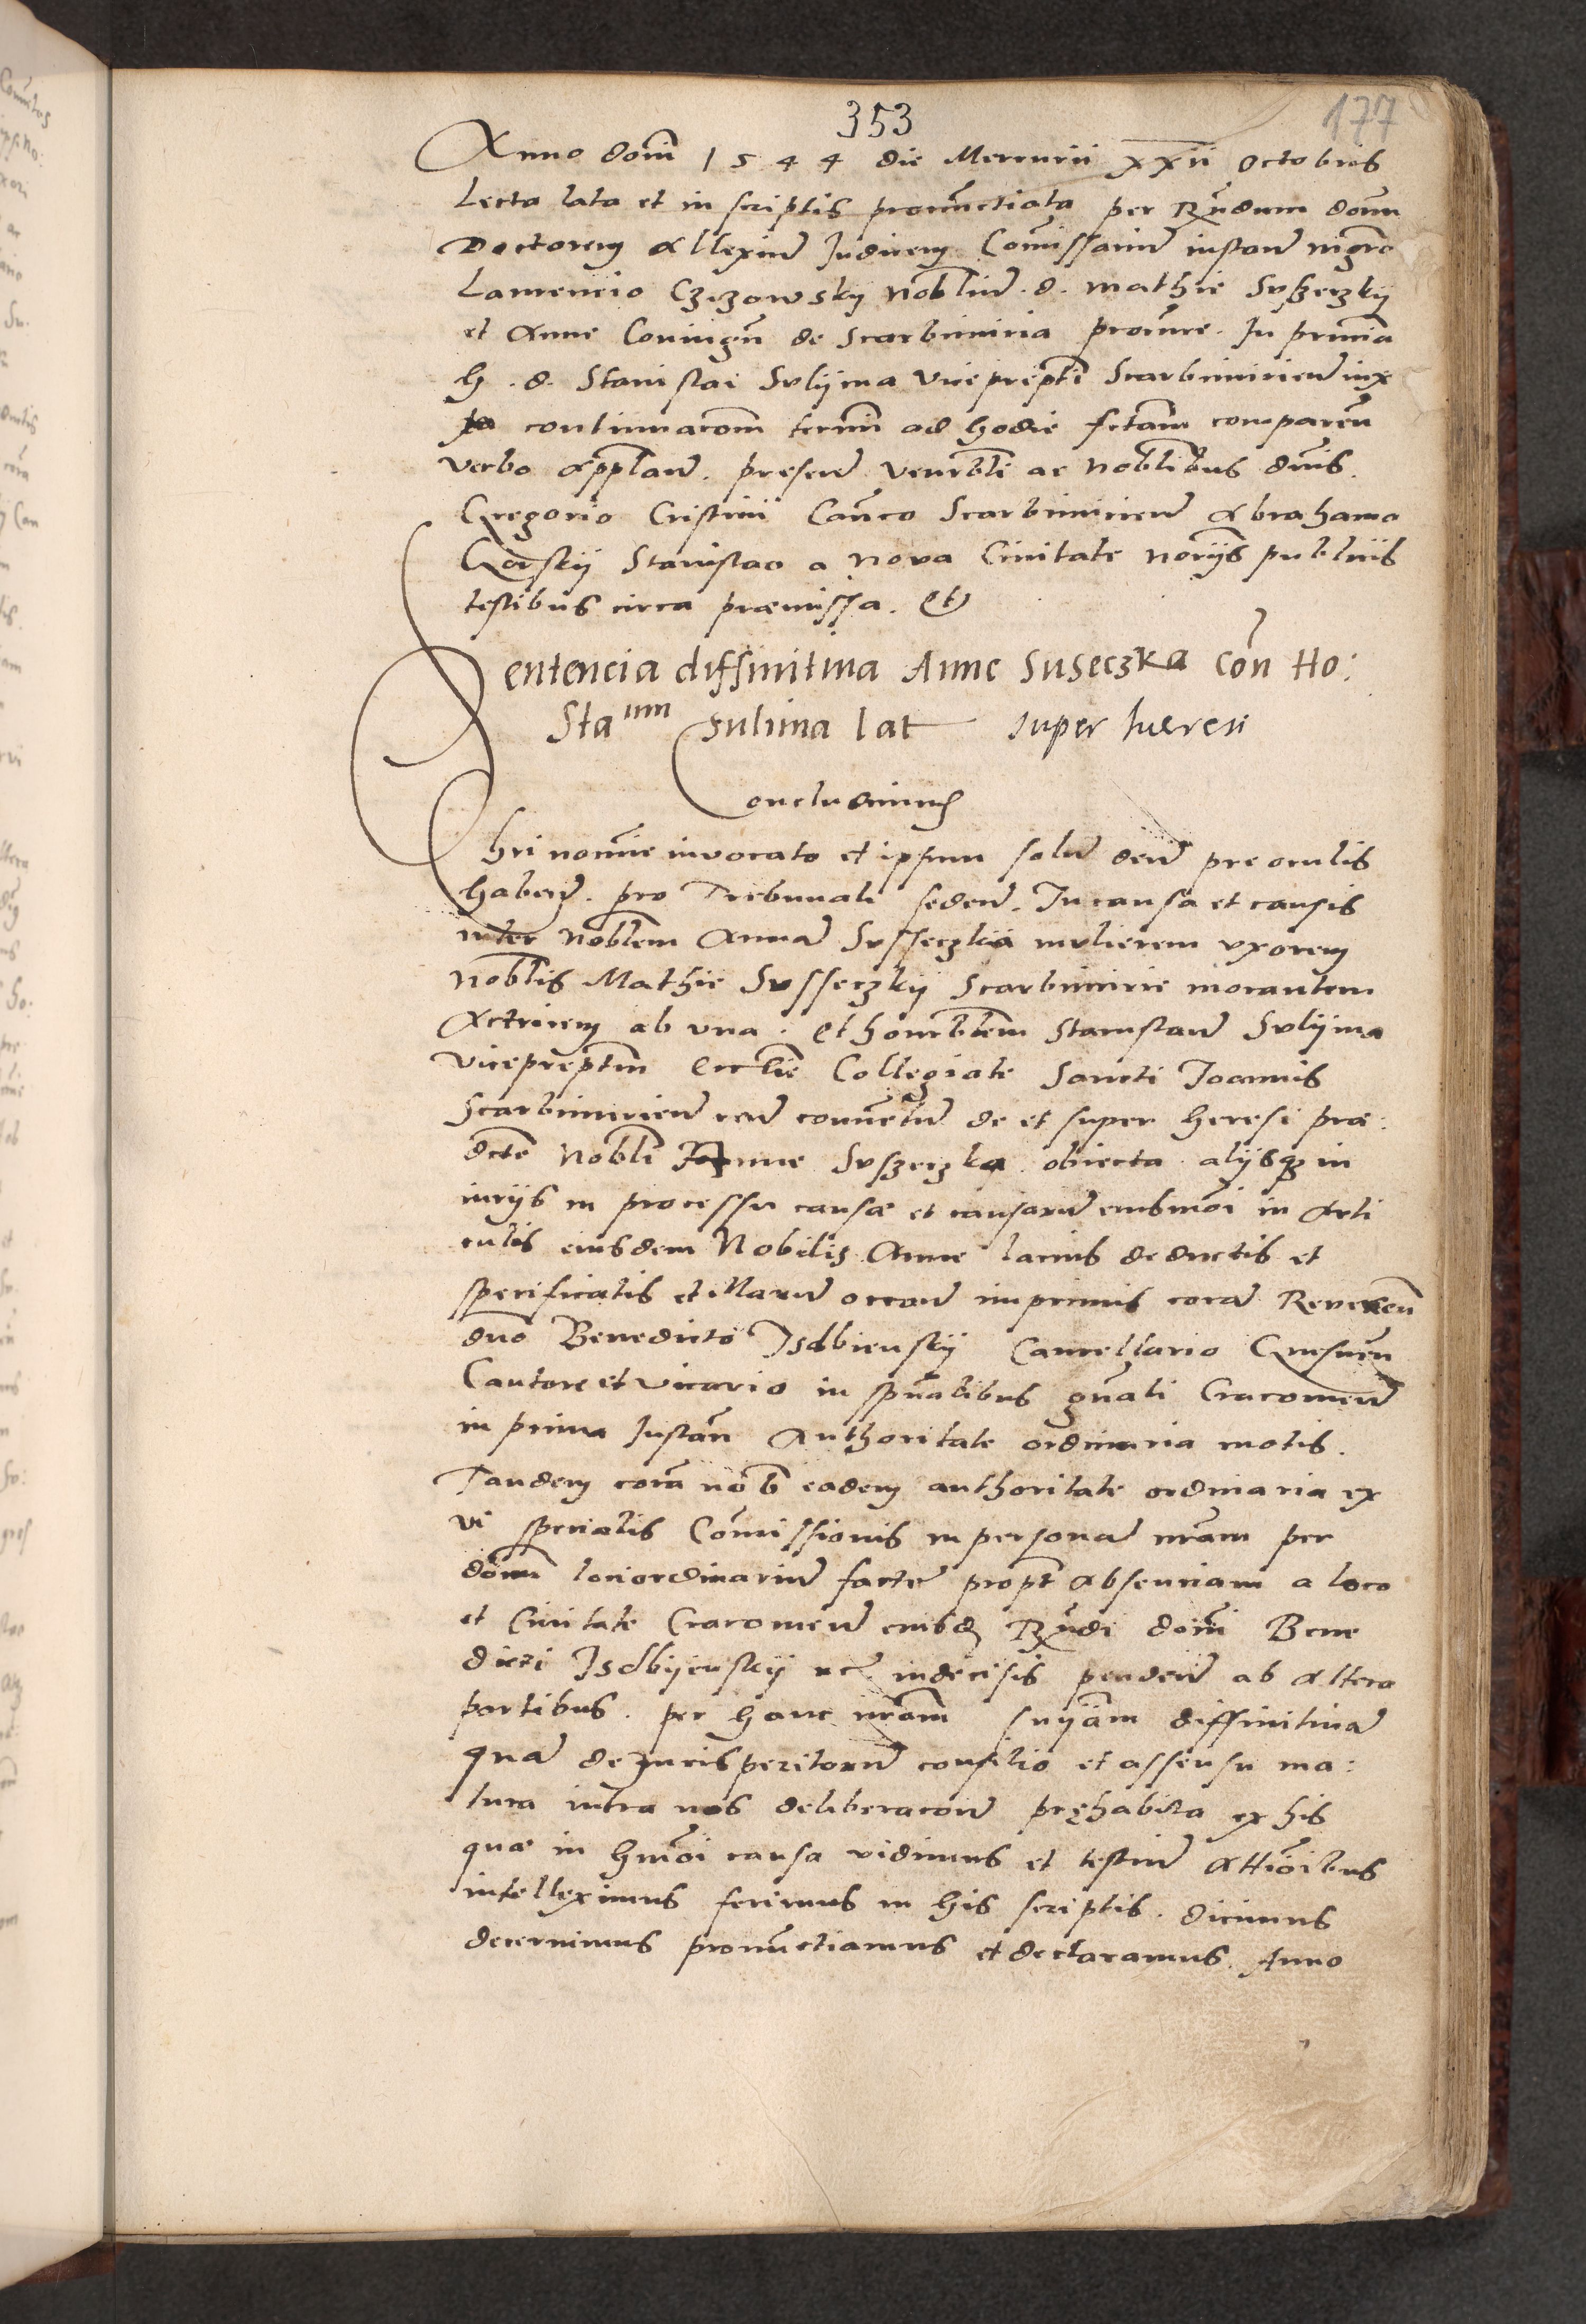 353
177
Anno domī 1544 die Mercurii xxii Octobris
Lecta lata et in scriptis pronūctiata per Rūdum domū
Doctorem Allexiū Judicem Cōmissariū instanť mgrō
Laurencio Czizowsky Nobliū. d. Mathie Suszeczky
et Anne Coniugū de Scarbimiria procure. In pnciā
h. d. Stanislai Sulyma Viceprepti Scarbimirieň iux
ta continuacom termī ad hodie fctam compareň
verbo appplanť. presenť venrbli ac Noblibus dnis.
Gregorio Cristini Canco Scarbimirieň Abrahamo
Gorsky Stanislao a Nova Civitate noriis publicis
testibus circa præmissa. etc
Sentencia diffinitiva Anne Suseczka Con Ho:
Sta<sup>um</sup> sulima lat super hæresi
Concludimus
Chri nomīe invocato et ipsum solū deū pre oculis
habenť. pro Tribunali sedenť. In causa et causis
inter Noblem Annā Susseczka mulierem uxorem
Noblis Mathie Susseczky Scarbimirie morantem
Actricem ab una. et honrblem Stanislaū Sulyma
viceprepťm Ecclie Collegiate Sancti Joannis
Scarbimirieň reū convētū de et super heresi præ:
dcte Nobli Anne Suszeczka. obiecta alijsq in
iuriis in processu causæ et causarū eiusmōi in Arti
culis eiusdem Nobilis Anne lacius deductis et
specificatis et illarū occaōē inprimis corā Revereň
dno Benedicto Isdbiensky Cancellario Gnesneň
Cantore et vicario in spūalibus gnāli Cracovieň
in prima Instań Authoritate ordinaria motis.
Tandem corā nob eadem authoritate ordinaria ex
vi specialis Cōmissionis in personā nram per
domū loci ordinariū facte propt absenciam a loco
et Civitate Cracovieň eiusd Rūdi domī Bene
dicti Isdbyensky etc. indecisis pendeň ab altera
partibus. per hanc nram snīam diffinitivā
quā de Jurisperitorū consilio et assensu ma:
tura intra nos deliberacōe pręhabita ex his
quæ in hmōi causa vidimus et testiū Attiōibus
intelleximus ferimus in his scriptis. dicimus
decernimus pronūctiamus et declaramus. Anno